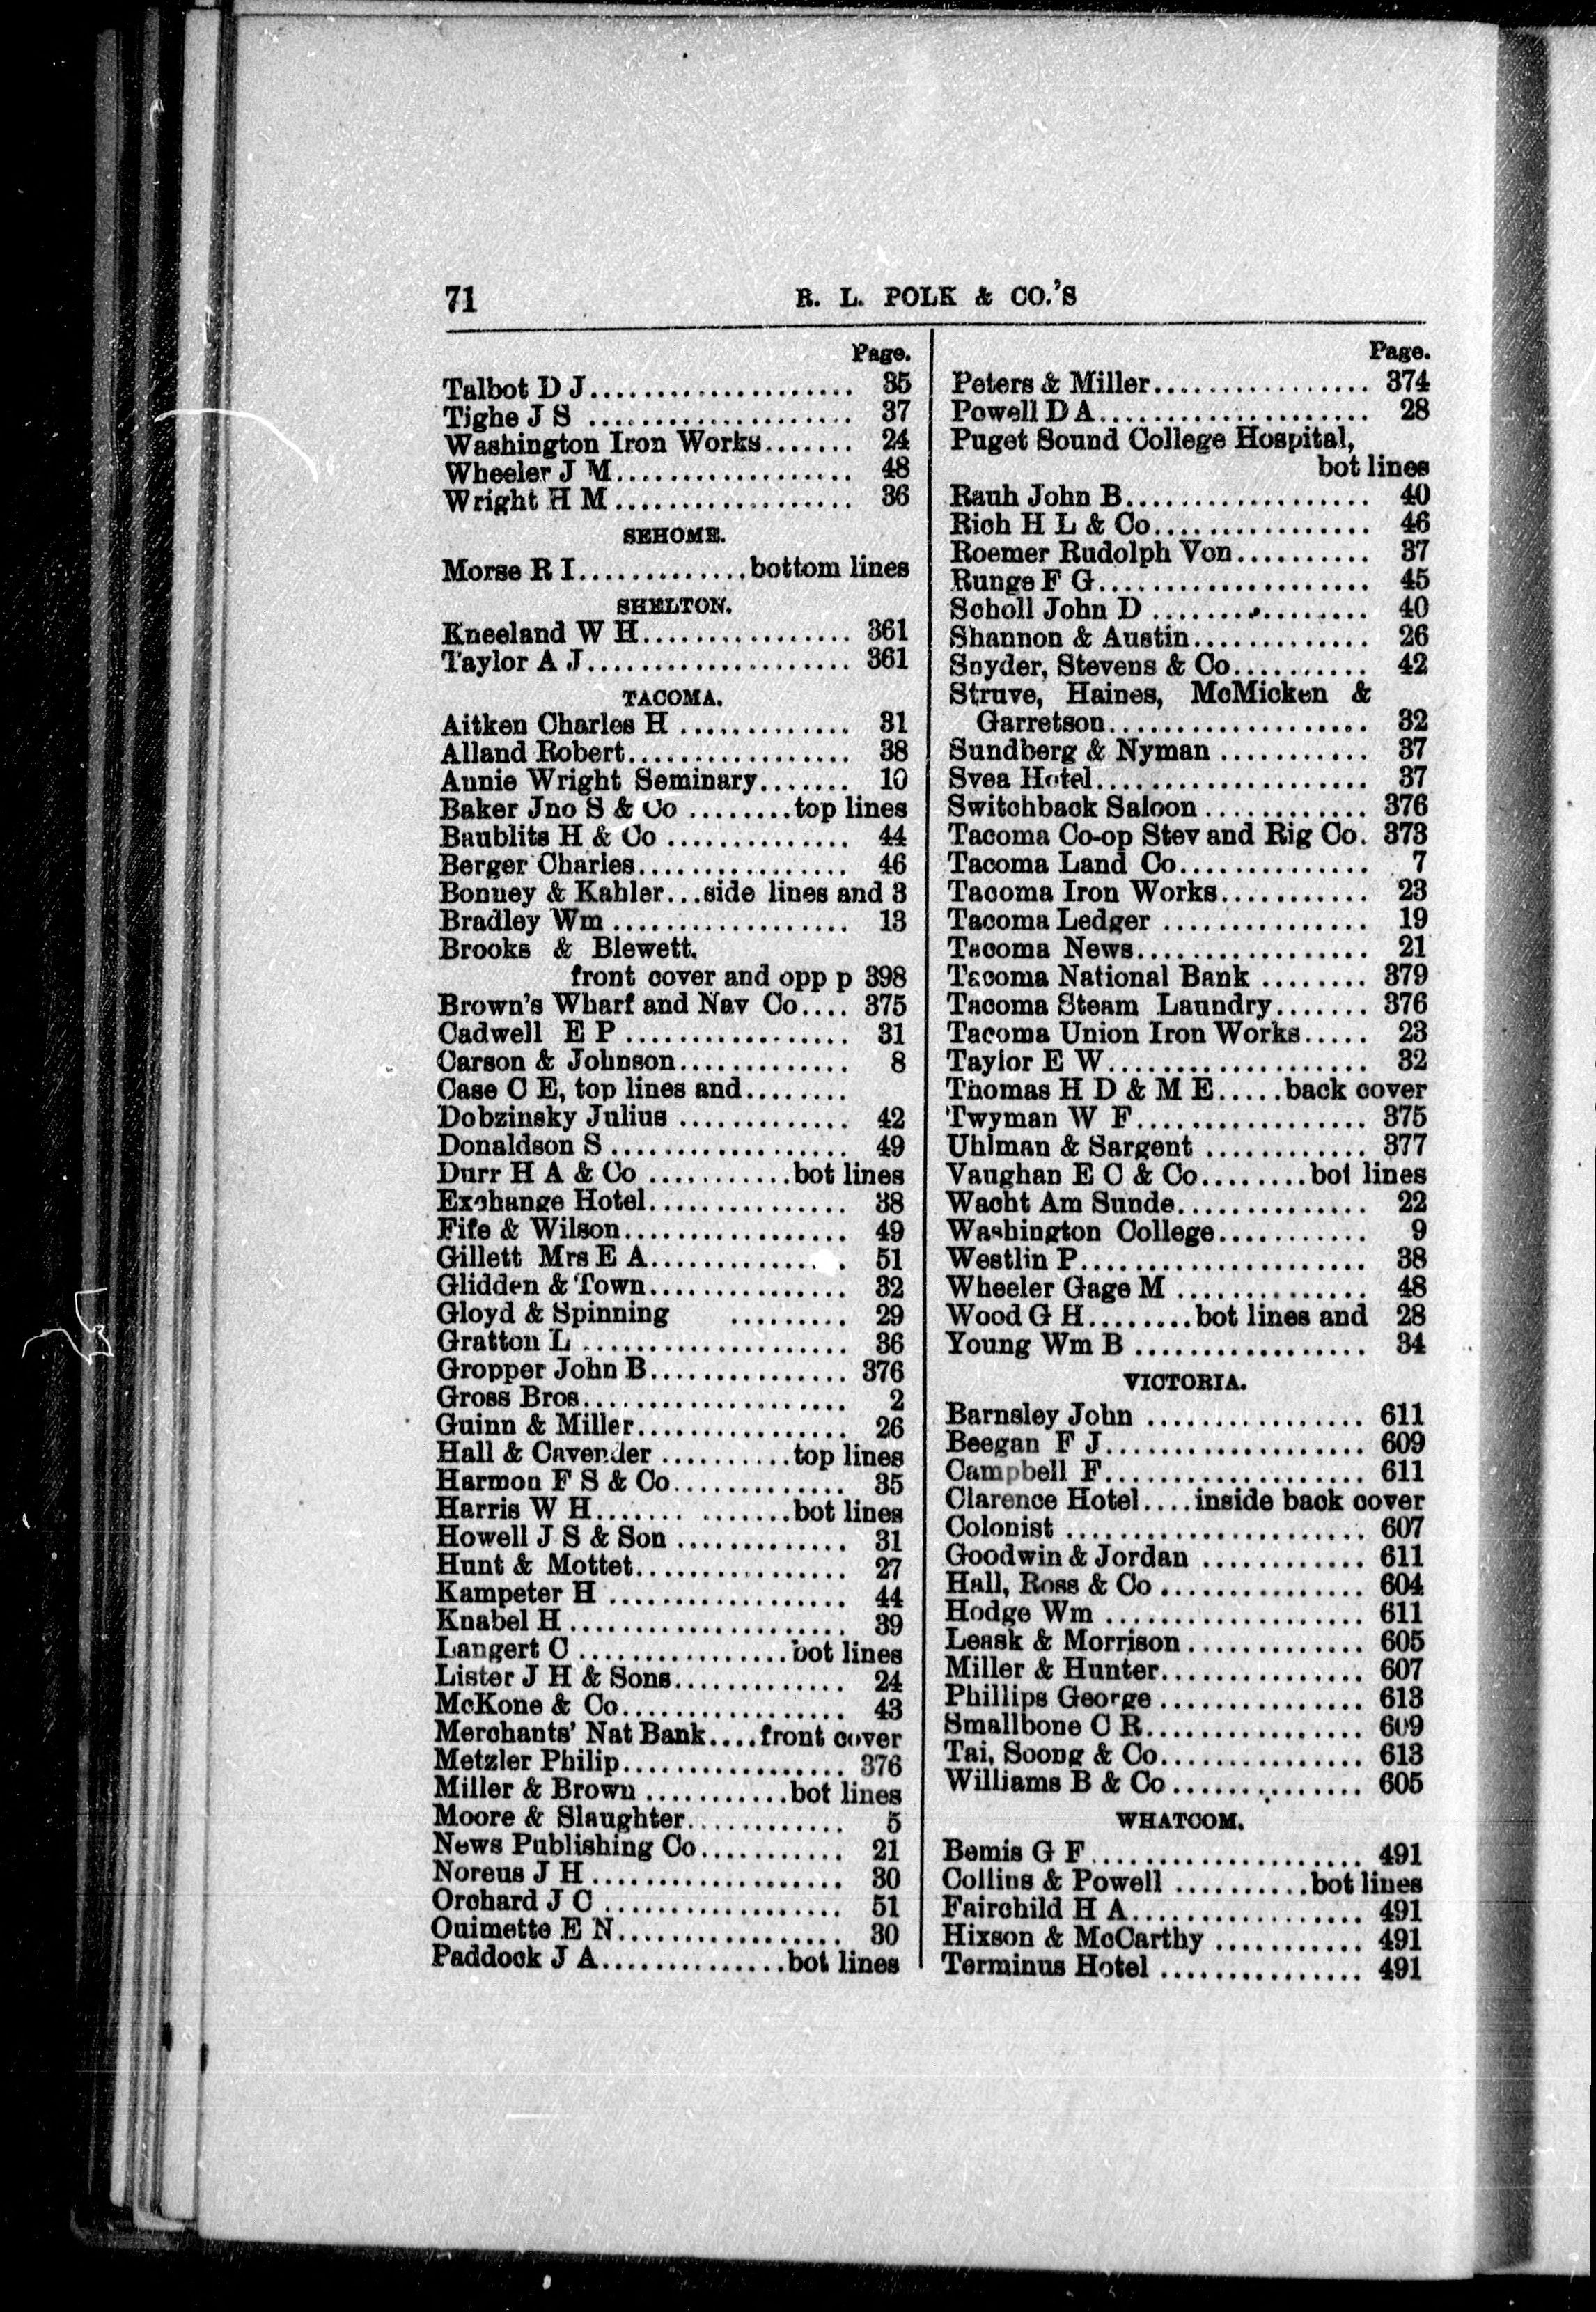 71
R. L. POLK & CO.'S
Page.
Talbot D J.................... 35
Tighe J S .................... 37
Washington Iron Works....... 24
Wheeler J M.................. 48
Wright H M .................. 36
SEHOME.
Morse R I.............bottom lines
SHELTON.
Kneeland W H................ 361
Taylor A J.................... 361
TACOMA.
Aitken Charles H ............. 31
Alland Robert................. 38
Annie Wright Seminary....... 10
Baker Jno S & Co ........top lines
Baublits H & Co .............. 44
Berger Charles................ 46
Bonney & Kahler...side lines and 3
Bradley Wm .................. 13
Brooks & Blewett,
front cover and opp p 398
Brown's Wharf and Nav Co.... 375
Cadwell E P ................. 31
Carson & Johnson............. 8
Case C E, top lines and........
Dobzinsky Julius ............. 42
Donaldson S .................. 49
Durr H A & Co ...........bot lines
Exchange Hotel............... 38
Fife & Wilson................. 49
Gillett Mrs E A............... 51
Glidden & Town............... 32
Gloyd & Spinning ......... 29
Gratton L .................... 36
Gropper John B............... 376
Gross Bros.................... 2
Guinn & Miller................ 26
Hall & Cavender ..........top lines
Harmon F S & Co............. 35
Harris W H....... .......bot lines
Howell J S & Son ............. 31
Hunt & Mottet................ 27
Kampeter H .................. 44
Knabel H ..................... 39
Langert C ................bot lines
Lister J H & Sons............. 24
McKone & Co................. 43
Merchants' Nat Bank....front cover
Metzler Philip................. 376
Miller & Brown ...........bot lines
Moore & Slaughter............ 5
News Publishing Co........... 21
Noreus J H ................... 30
Orchard J C .................. 51
Ouimette E N................. 30
Paddock J A..............bot lines
Page.
Peters & Miller................ 374
Powell D A.................... 28
Puget Sound College Hospital,
bot lines
Rauh John B.................. 40
Rich H L & Co................ 46
Roemer Rudolph Von.......... 37
Runge F G.................... 45
Scholl John D ................ 40
Shannon & Austin............. 26
Snyder, Stevens & Co.......... 42
Struve, Haines, McMicken &
Garretson................... 32
Sundberg & Nyman ........... 37
Svea Hotel.................... 37
Switchback Saloon ............ 376
Tacoma Co-op Stev and Rig Co. 373
Tacoma Land Co.............. 7
Tacoma Iron Works........... 23
Tacoma Ledger ............... 19
Tacoma News................. 21
Tacoma National Bank ........ 379
Tacoma Steam Laundry....... 376
Tacoma Union Iron Works..... 23
Taylor E W................... 32
Thomas H D & M E.....back cover
Twyman W F................. 375
Uhlman & Sargent ............ 377
Vaughan E C & Co........bot lines
Wacht Am Sunde.............. 22
Washington College........... 9
Westlin P..................... 38
Wheeler Gage M .............. 48
Wood G H........bot lines and 28
Young Wm B ................. 34
VICTORIA.
Barnsley John ................ 611
Beegan F J................... 609
Campbell F................... 611
Clarence Hotel....inside back cover
Colonist ...................... 607
Goodwin & Jordan ............ 611
Hall, Ross & Co ............... 604
Hodge Wm ................... 611
Leask & Morrison............. 605
Miller & Hunter............... 607
Phillips George ............... 613
Smallbone C R................ 609
Tai, Soong & Co............... 613
Williams B & Co .............. 605
WHATCOM.
Bemis G F.................... 491
Collins & Powell ..........bot lines
Fairchild H A................. 491
Hixson & McCarthy ........... 491
Terminus Hotel ............... 491